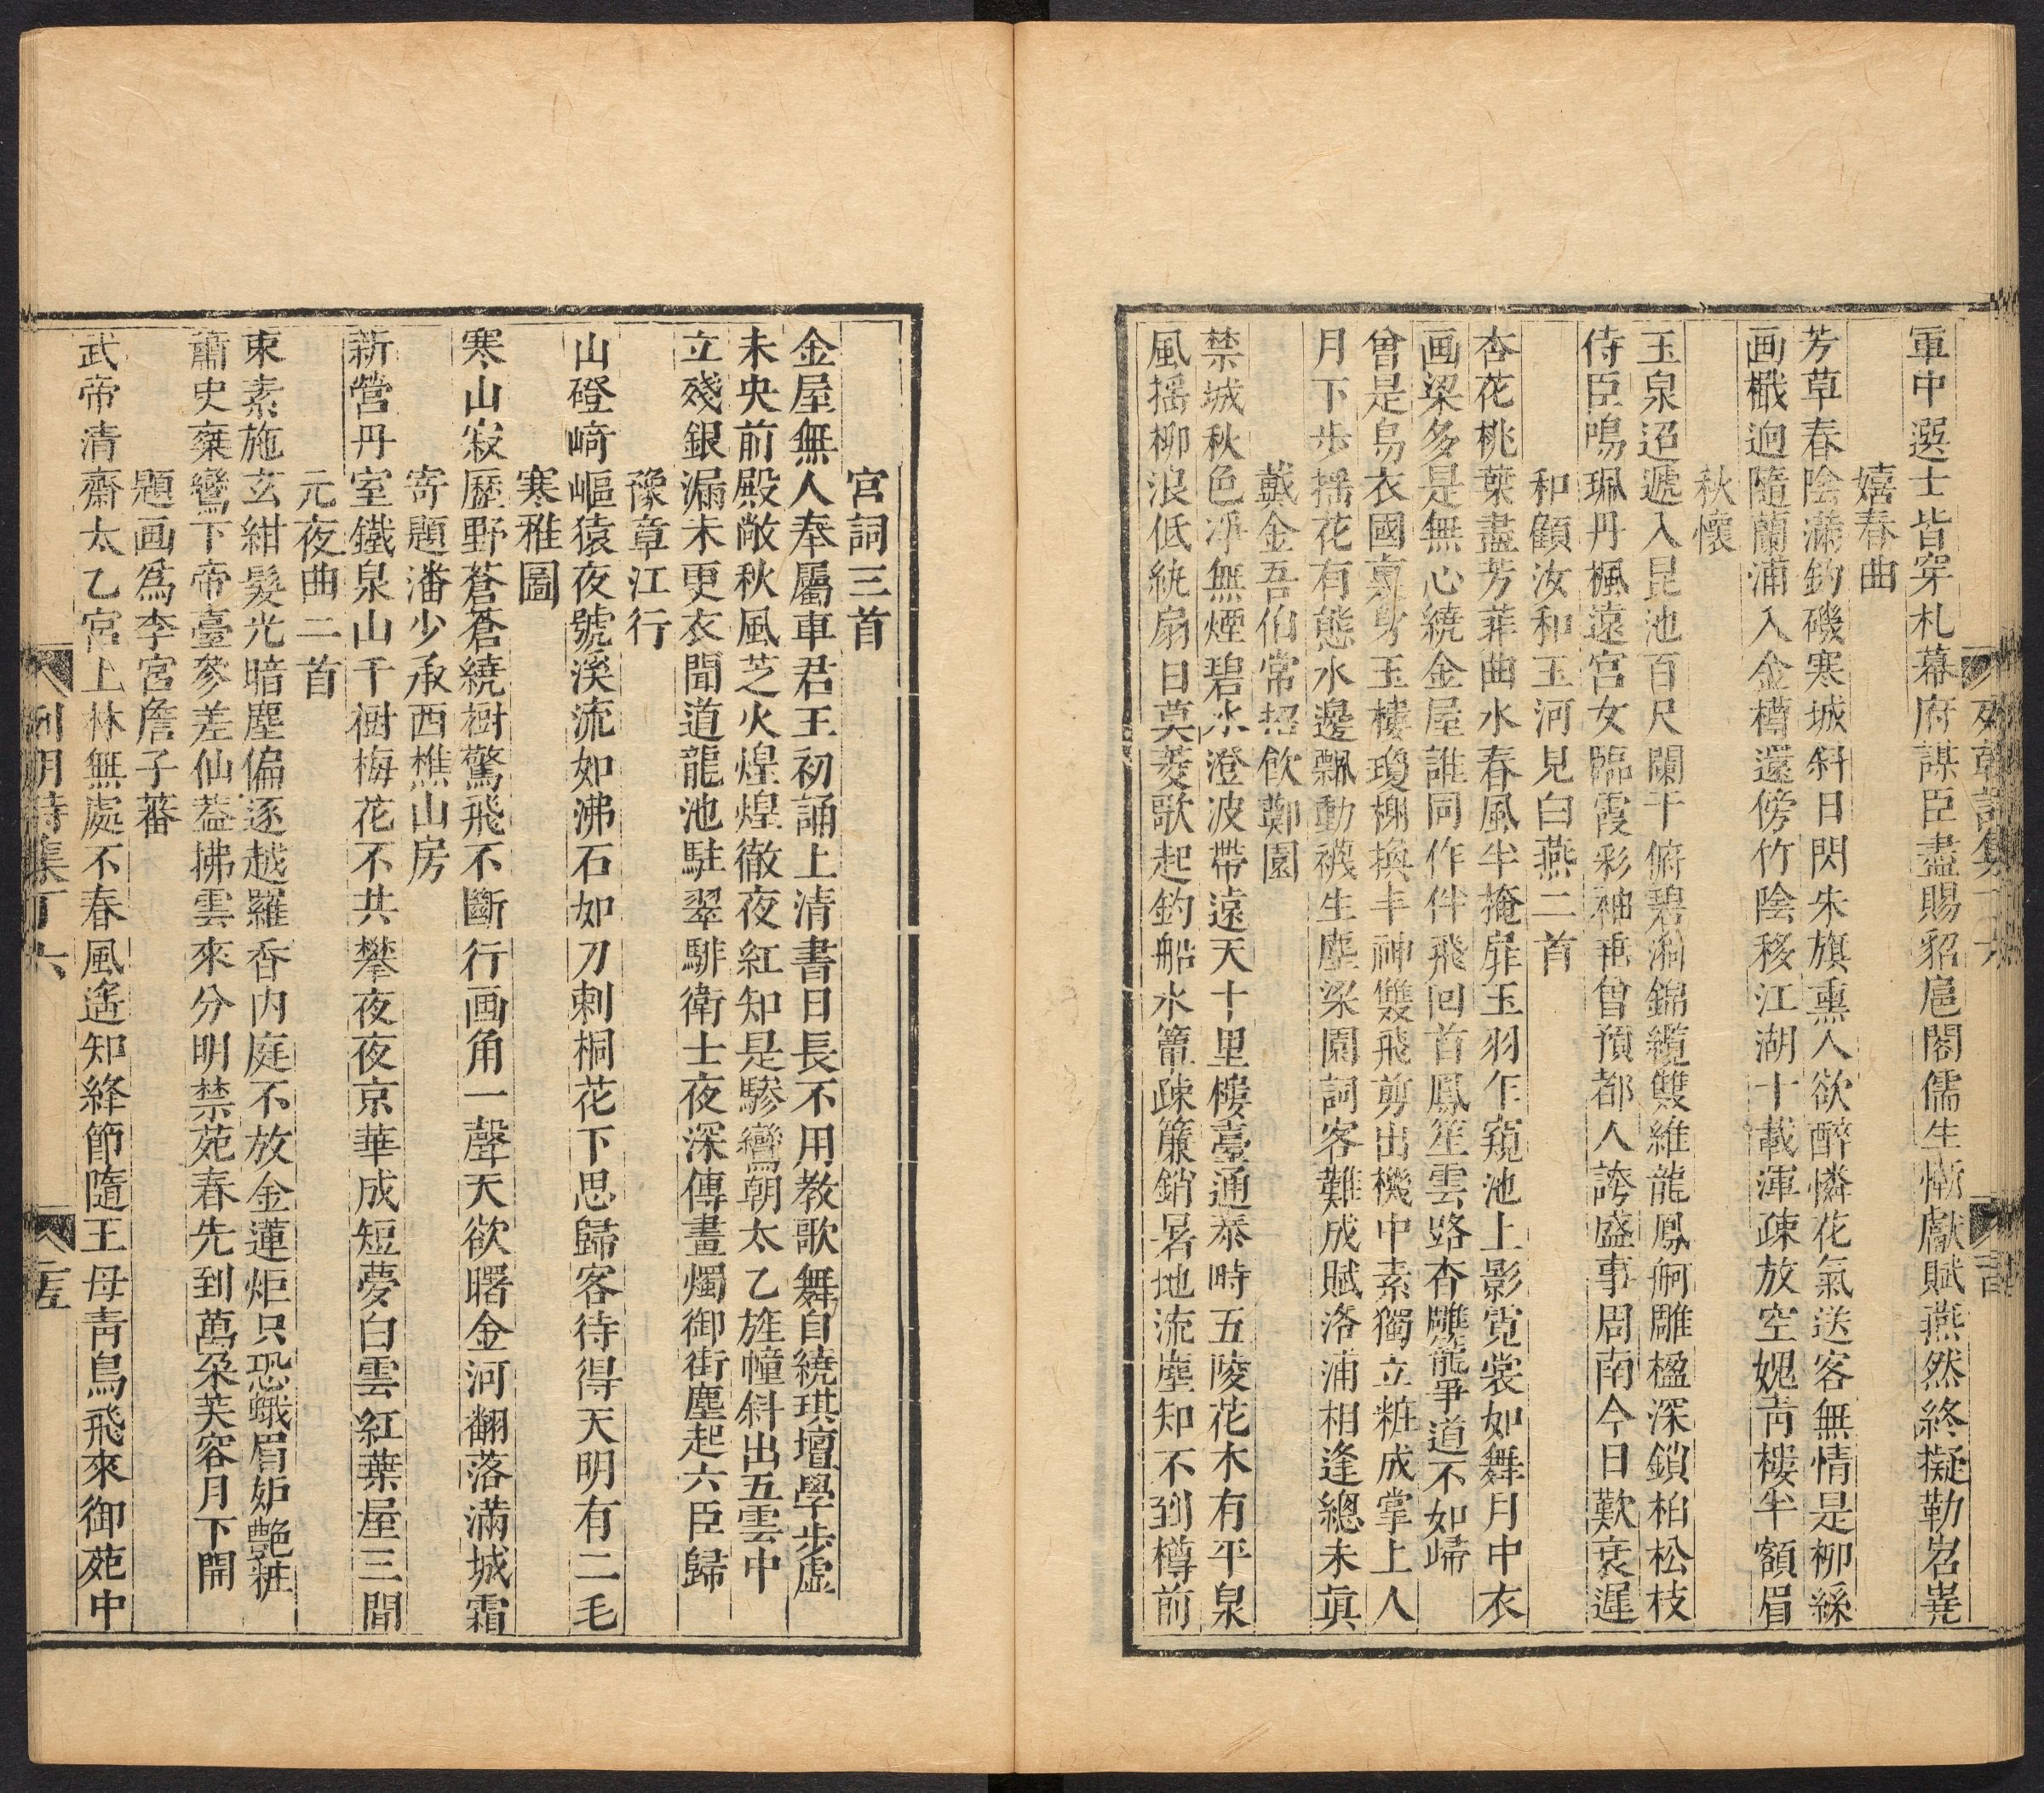 軍中選士皆穿札幕府謀臣盡賜貂扈閣儒生慚獻賦燕然終擬勒岧嶤
嬉春曲
芳草春陰滿釣磯寒城斜日閃朱旗熏人欲醉憐花氣送客無情是柳絲
画檝迥隨蘭浦入金槽還傍竹陰移江湖十載渾疎放空媿靑樓半額眉
秋懷
玉泉迢遞入昆池百尺闌干俯碧漪錦纜雙維龍鳳舸雕楹深鎖柏松枝
侍臣鳴珮丹楓遠宮女臨霞彩袖垂曾預都人誇盛事周南今日歎衰遲
和顧汝和玉河見白燕二首
杏花桃葉盡芳菲曲水春風半掩扉玉羽乍窺池上影霓裳如舞月中衣
画梁多是無心繞金屋誰同作伴飛回首鳳笙雲路杳雕籠爭道不如歸
曾是烏衣國裏身玉樓瓊樹換丰神雙飛剪出機中素獨立粧成掌上人
月下步搖花有態水邊飄動襪生塵梁園詞客難成賦洛浦相逢總未眞
戴金吾伯常招飮鄭園
禁城秋色淨無煙碧水澄波帶遠天十里樓臺通泰時五陵花木有平泉
風搖柳浪低紈扇日莫菱歌起釣船水簟疎簾銷暑地流塵知不到樽前
列朝詩集丁六
宮詞三首
金屋無人奉屬車君王初誦上清書日長不用教歌舞自繞琪壇學步虛
未央前殿敞秋風芝火煌煌徹夜紅知是驂鸞朝太乙旌幢斜出五雲中
立殘銀漏未更衣聞道龍池駐翠騑衛士夜深傳畫燭御街塵起六臣歸
豫章江行
山磴崎嶇猿夜號溪流如沸石如刀刺桐花下思歸客待得天明有二毛
寒鴉圖
寒山寂歷野蒼蒼繞樹驚飛不斷行画角一聲天欲曙金河翻落滿城霜
寄題潘少承西樵山房
新營丹室鐵泉山千樹梅花不共攀夜夜京華成短夢白雲紅葉屋三間
元夜曲二首
束素施玄紺髮光暗塵偏逐越羅香內庭不放金蓮炬只恐蛾眉妒艷粧
蕭史乘鸞下帝臺參差仙蓋拂雲來分明禁苑春先到萬朶芙容月下開
題画爲李宮詹子蕃
武帝清齋太乙宮上林無處不春風遙知絳節隨王母靑鳥飛來御苑中
列朝詩集丁六